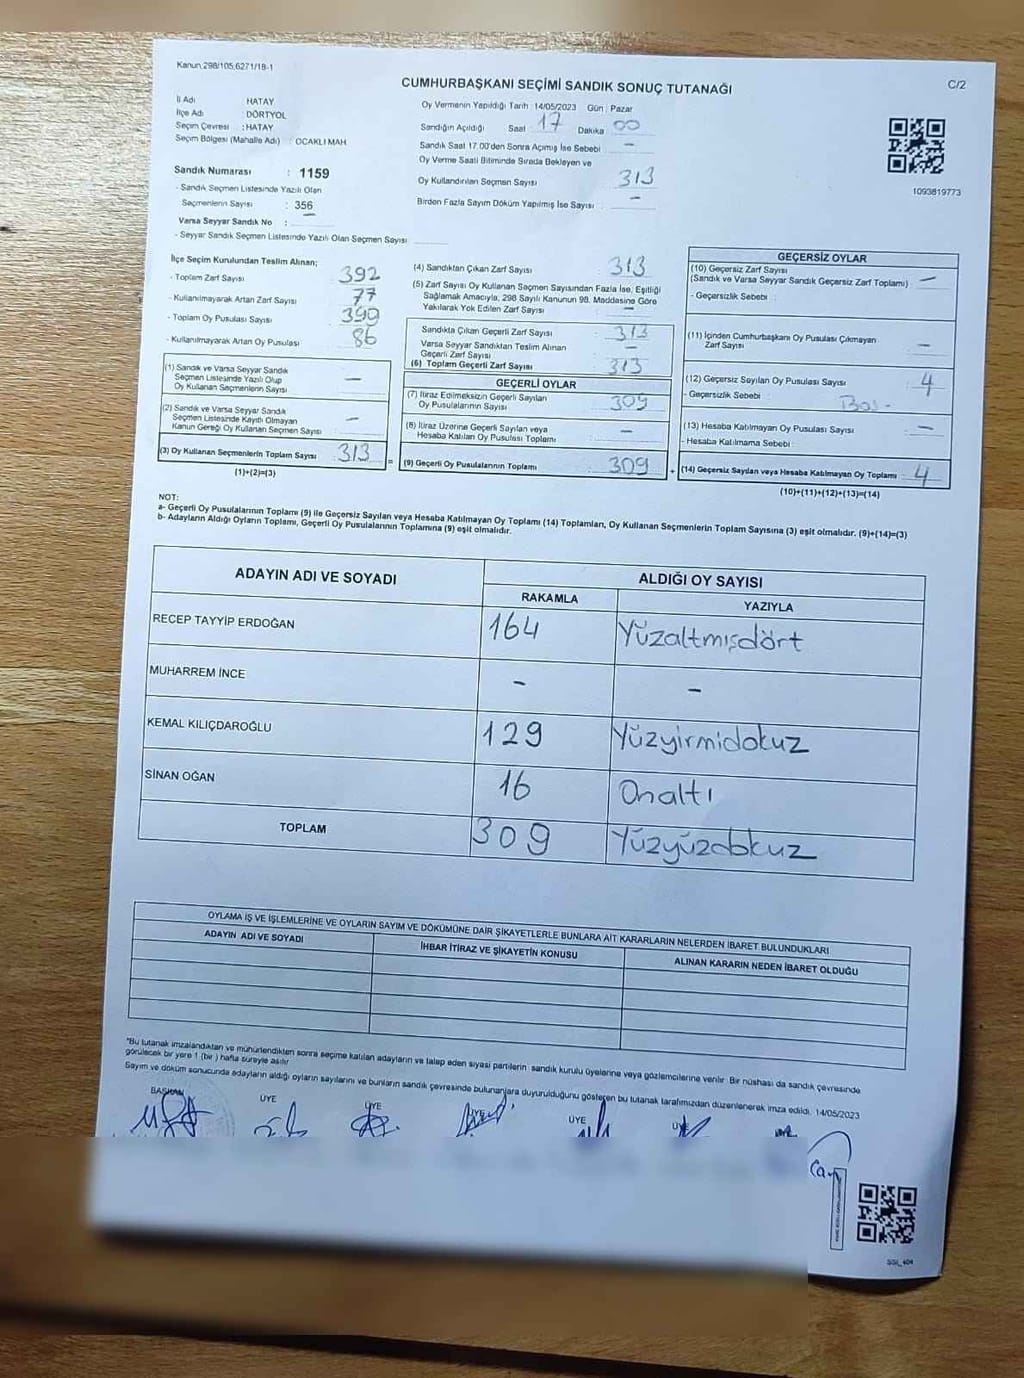 Kanun 298/105,6271/18-1
CUMHURBAŞKANI SEÇİMİ SANDIK SONUÇ TUTANAĞI
C/2
İl Adı HATAY
İlçe Adı DÖRTYOL
Seçim Çevresi : HATAY
Seçim Bölgesi (Mahalle Adı) : OCAKLI MAH
Sandık Numarası : 1159
- Sandık Seçmen Listesinde Yazılı Olan
Seçmenlerin Sayısı : 356
Varsa Seyyar Sandık No : –
- Seyyar Sandık Seçmen Listesinde Yazılı Olan Seçmen Sayısı
Oy Vermenin Yapıldığı Tarih : 14/05/2023 Gün : Pazar
Sandığın Açıldığı Saat 17 Dakika 00
Sandık Saat 17.00'den Sonra Açılmış İse Sebebi –
Oy Verme Saati Bitiminde Sırada Bekleyen ve
Oy Kullandırılan Seçmen Sayısı 313
Birden Fazla Sayım Döküm Yapılmış İse Sayısı : –
1093819773
İlçe Seçim Kurulundan Teslim Alınan;
- Toplam Zarf Sayısı 392
- Kullanılmayarak Artan Zarf Sayısı 77
- Toplam Oy Pusulası Sayısı 399
- Kullanılmayarak Artan Oy Pusulası 86
(1) Sandık ve Varsa Seyyar Sandık
Seçmen Listesinde Yazılı Olup
Oy Kullanan Seçmenlerin Sayısı –
(2) Sandık ve Varsa Seyyar Sandık
Seçmen Listesinde Kayıtlı Olmayan
Kanun Gereği Oy Kullanan Seçmen Sayısı –
(3) Oy Kullanan Seçmenlerin Toplam Sayısı 313
(1)+(2)=(3)
(4) Sandıktan Çıkan Zarf Sayısı 313
(5) Zarf Sayısı Oy Kullanan Seçmen Sayısından Fazla İse, Eşitliği
Sağlamak Amacıyla, 298 Sayılı Kanunun 98. Maddesine Göre
Yakılarak Yok Edilen Zarf Sayısı –
Sandıkta Çıkan Geçerli Zarf Sayısı 313
Varsa Seyyar Sandıktan Teslim Alınan
Geçerli Zarf Sayısı –
(6) Toplam Geçerli Zarf Sayısı 313
GEÇERLİ OYLAR
(7) İtiraz Edilmeksizin Geçerli Sayılan
Oy Pusulalarının Sayısı 309
(8) İtiraz Üzerine Geçerli Sayılan veya
Hesaba Katılan Oy Pusulası Toplamı –
= (9) Geçerli Oy Pusulalarının Toplamı 309 +
GEÇERSİZ OYLAR
(10) Geçersiz Zarf Sayısı
(Sandık ve Varsa Seyyar Sandık Geçersiz Zarf Toplamı) –
- Geçersizlik Sebebi
(11) İçinden Cumhurbaşkanı Oy Pusulası Çıkmayan
Zarf Sayısı –
(12) Geçersiz Sayılan Oy Pusulası Sayısı 4
- Geçersizlik Sebebi
(13) Hesaba Katılmayan Oy Pusulası Sayısı –
- Hesaba Katılmama Sebebi
(14) Geçersiz Sayılan veya Hesaba Katılmayan Oy Toplamı 4
(10)+(11)+(12)+(13)=(14)
NOT:
a- Geçerli Oy Pusulalarının Toplamı (9) ile Geçersiz Sayılan veya Hesaba Katılmayan Oy Toplamı (14) Toplamları, Oy Kullanan Seçmenlerin Toplam Sayısına (3) eşit olmalıdır. (9)+(14)=(3)
b- Adayların Aldığı Oyların Toplamı, Geçerli Oy Pusulalarının Toplamına (9) eşit olmalıdır.
ADAYIN ADI VE SOYADI ALDIĞI OY SAYISI
RAKAMLA YAZIYLA
RECEP TAYYİP ERDOĞAN 164 Yüzaltmışdört
MUHARREM İNCE – –
KEMAL KILIÇDAROĞLU 129 Yüzyirmidokuz
SİNAN OĞAN 16 Onaltı
TOPLAM 309 Yüzyüzdokuz
OYLAMA İŞ VE İŞLEMLERİNE VE OYLARIN SAYIM VE DÖKÜMÜNE DAİR ŞİKAYETLERLE BUNLARA AİT KARARLARIN NELERDEN İBARET BULUNDUKLARI
ADAYIN ADI VE SOYADI İHBAR İTİRAZ VE ŞİKAYETİN KONUSU ALINAN KARARIN NEDEN İBARET OLDUĞU
"Bu tutanak imzalandıktan ve mühürlendikten sonra seçime katılan adayların ve talep eden siyasi partilerin sandık kurulu üyelerine veya gözlemcilerine verilir. Bir nüshası da sandık çevresinde
görülecek bir yere 1 (bir) hafta süreyle asılır
Sayım ve döküm sonucunda adayların aldığı oyların sayılarını ve bunların sandık çevresinde bulunanlara duyurulduğunu gösteren bu tutanak tarafımızdan düzenlenerek imza edildi. 14/05/2023
BAŞKAN ÜYE ÜYE ÜYE ÜYE ÜYE